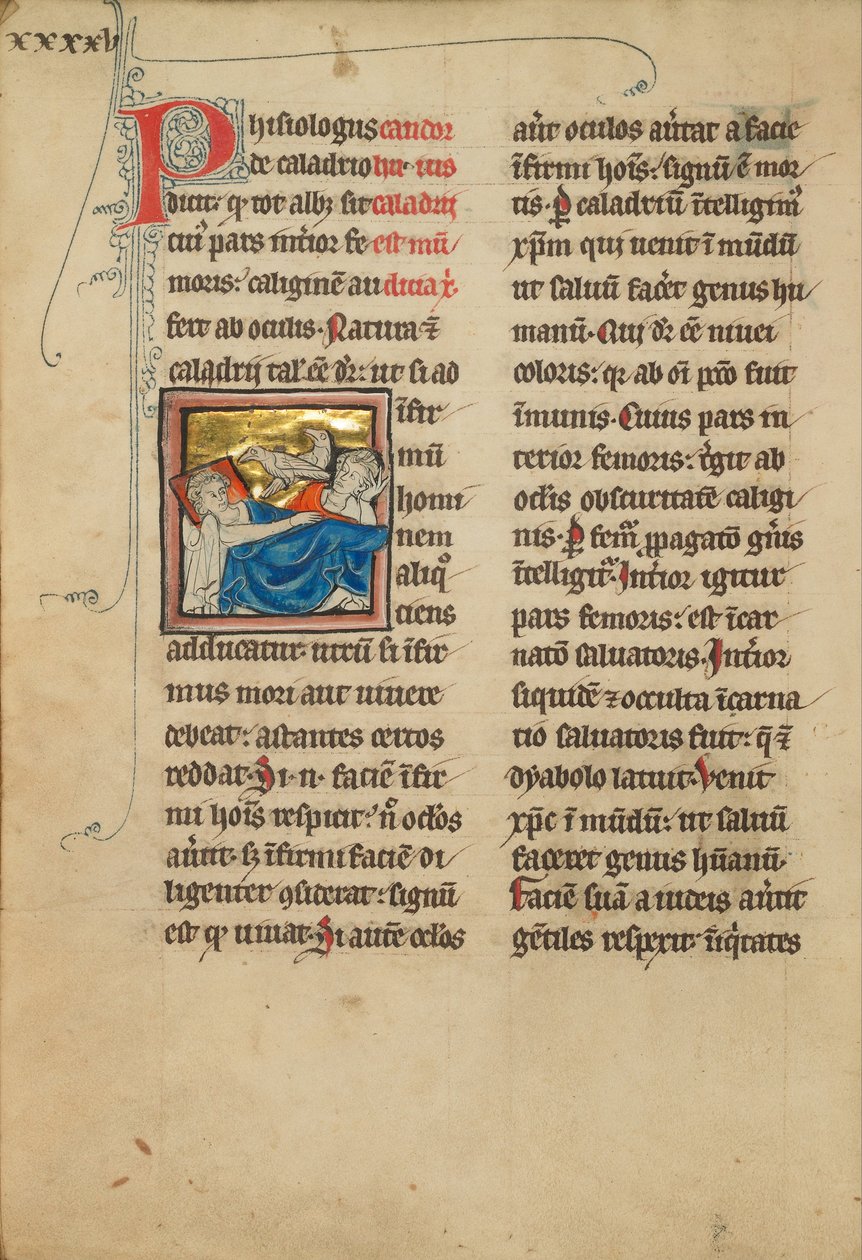 xxxxv
Phisiologus candor
de caladrio hui ius
dicit: qͥ tot albꝫ sit caladrij
cuiꝰ pars inťior fe est mū
moris: caliginē au diciaxͥ.
fert ab oculis. Natura ⁊̄
caladrij tal̕ eē dr̄: ut si ad
īfir
mū
homi
nem
aliq̊
ciens
adducatur. utrū si īfir
mus mori aut uiuere
debeat: astantes certos
reddat. Si .n. faciē īfir
mi hoīs respicit: n̊ oclos
au̕tit. sꝫ īfirmi faciē di
ligenter ꝯsiderat: signū
est qͥ uiuat. Si autē oclos
aut̕ oculos au̕tat a facie
īfirmi hoīs: signū ē mor
tis. ꝑ caladriū ītelligimꝰ
xp̄m qui uenit ī mūdū
ut saluū fac̕et genus hu
manū. Qui dr̄ eē niuei
coloris: qͥ ab oī pc̄o fuit
īmunis. Cuius pars in
terior femoris: t̕git ab
oclis obscuritatē caligi
nis. ꝑ fem̕ ꝓpagatō gn̕is
ītelligit᷑. Int̕ior igitur
pars femoris: est īcar
natō saluatoris. Int̕ior
siquidē ⁊ occulta īcarna
tio saluatoris fuit: q̄ ⁊̄
dyabolo latuit. Venit
xp̄c ī mūdū: ut saluū
faceret genus hūanū.
Faciē suā a iudeis au̕tit
gētiles respexit īiq̕tates